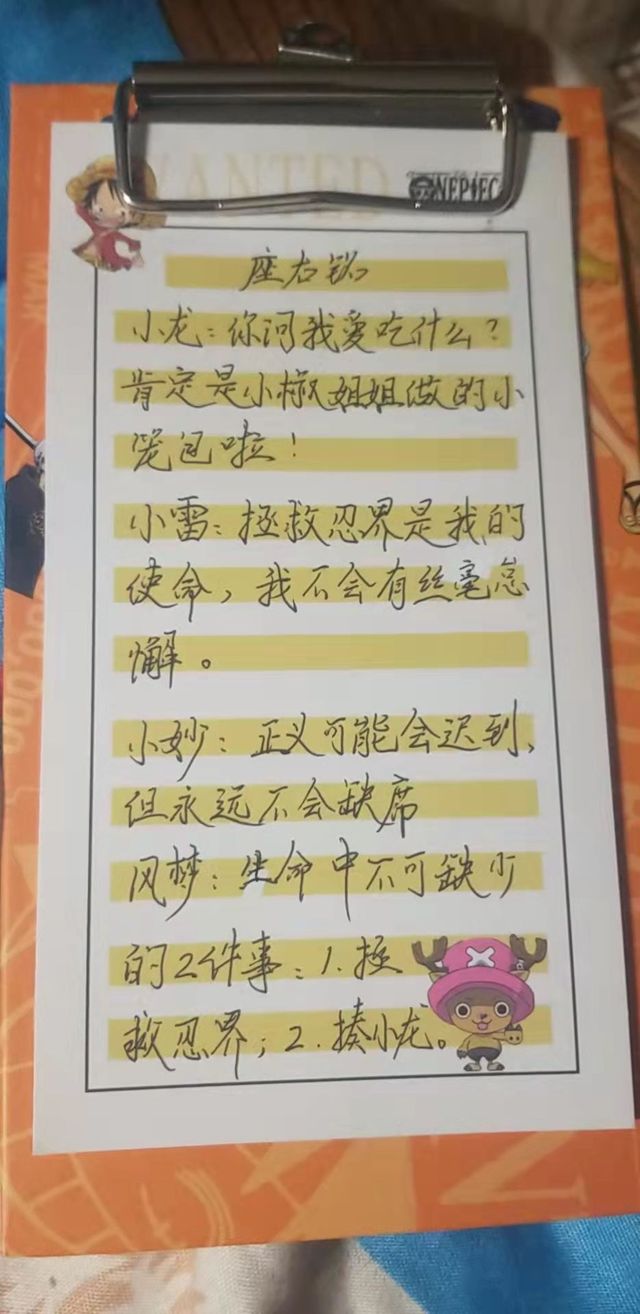 WANTED
ONEPIEC
座右铭
小龙:你问我爱吃什么?
肯定是小椒姐姐做的小
笼包啦!
小雷:拯救忍界是我的
使命,我不会有丝毫怠
懈。
小妙:正义可能会迟到,
但永远不会缺席
风梦:生命中不可缺少
的2件事:1.拯
救忍界;2.揍小龙。